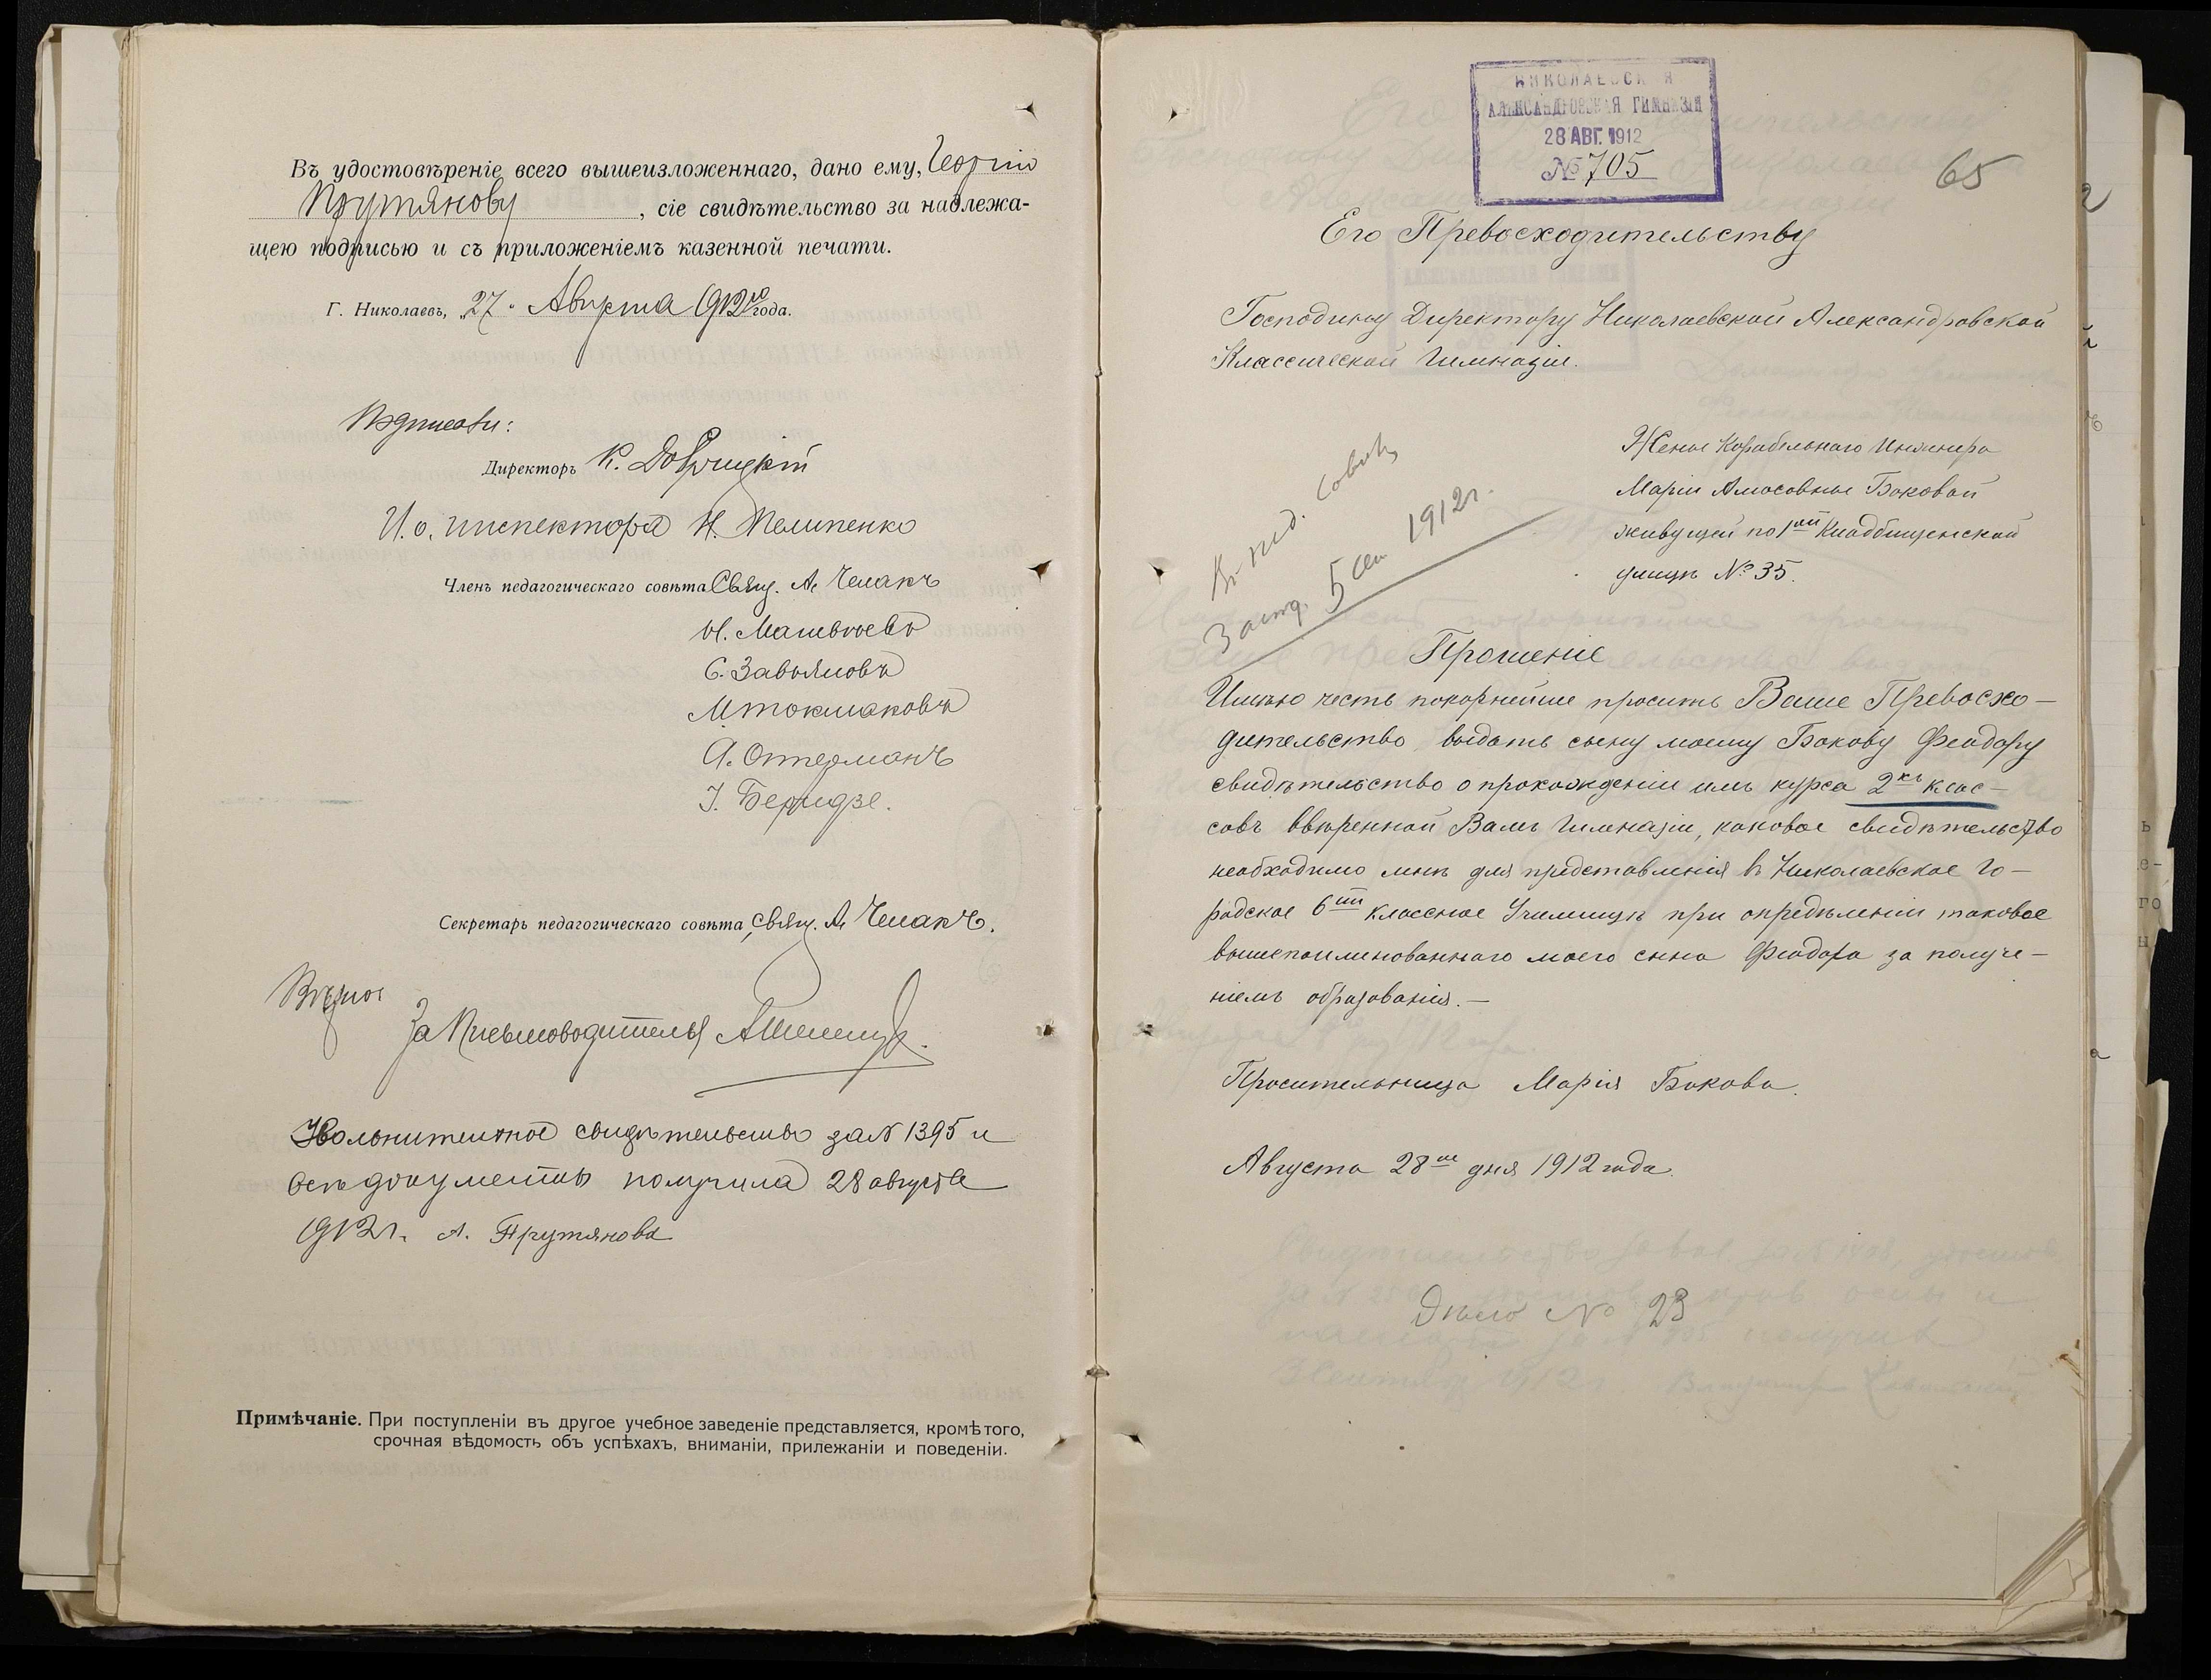 Въ удостовѣреніе всего вышеизложеннаго, дано ему, Георгію
Прутянову, сіе свидѣтельство за надлежа-
щею подписью и съ приложеніемъ казенной печати.
Г. Николаевъ, „27“ Августа 1912го года.
Подписали:
Директоръ К. Добрицкій
И. о. инспектора Н. Пелипенко
Членъ педагогическаго совѣта Свящ. А. Чемакъ
Н. Матвѣевъ
С. Завьяловъ
М. Токмаковъ
А. Оттерманъ
І. Беридзе.
Секретарь педагогическаго совѣта, свящ. А. Чемакъ.
Вѣрно:
За Письмоводителя
Увольнительное свидѣтельство за № 1395 и
всѣ документы получила 28 августа
1912 г. А. Прутянова
Примѣчаніе. При поступленіи въ другое учебное заведеніе представляется, кромѣ того,
срочная вѣдомость объ успѣхахъ, вниманіи, прилежаніи и поведеніи.
НИКОЛАЕВСКАЯ
АЛЕКСАНДРОВСКАЯ ГИМНАЗІЯ
28 АВГ. 1912
№ 705
65
Его Превосходительству
Господину Директору Николаевской Александровской
Классической Гимназіи.
Жены Корабельнаго Инженера
Маріи Амосовны Боковой
живущей по 1ой Кладбищенской
улицѣ № 35.
Въ пед. совѣтъ
Засѣд. 5 сен 1912 г.
Прошеніе
Имѣю честь покорнейше просить Ваше Превосхо-
дительство, выдать сыну моему Бокову Феодору
свидѣтельство о прохожденіи имъ курса 2хъ клас-
совъ ввѣренной Вамъ Гимназіи, каковое свидѣтельство
необходимо мнѣ для представленія въ Николаевское Го-
родское 6ти классное Училище при опредѣленіи таковое
вышепоименованнаго моего сына Феодора за получе-
ніемъ образованія.-
Просительница Марія Бокова.
Августа 28го дня 1912 года.
Дѣло № 23